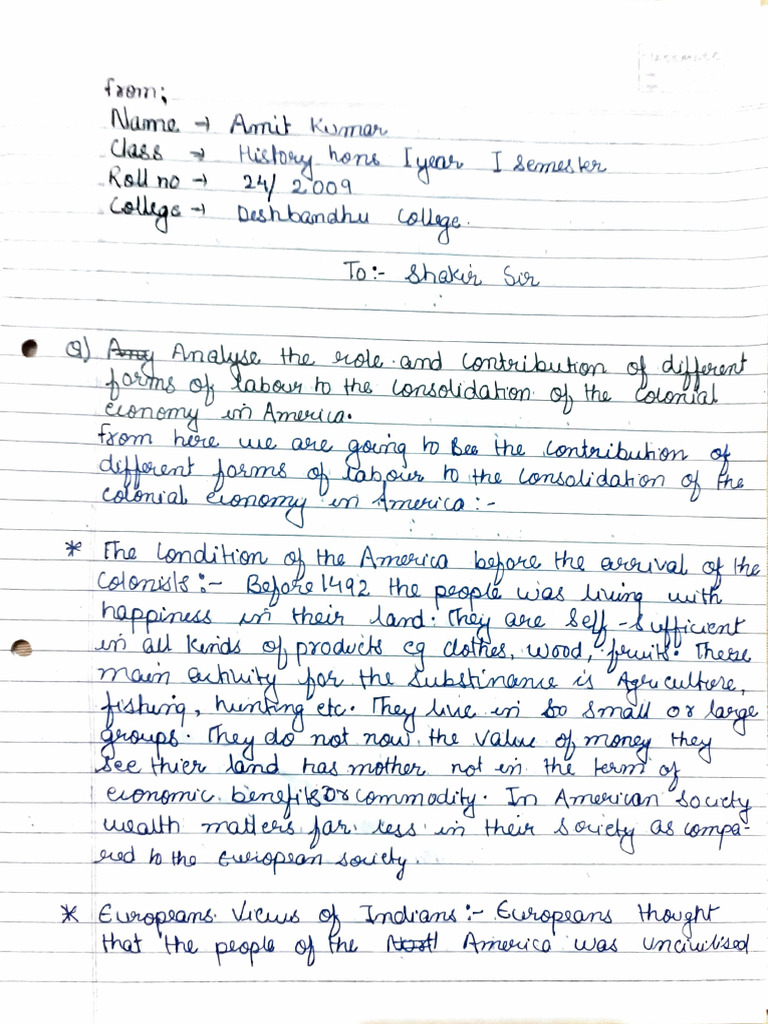 from;
Name → Amit Kumar
Class → History hons I year I semester
Roll no → 24/2009
College → Deshbandhu College.
To:- Shakir Sir
Q) Any Analyse the role and contribution of different
forms of labour to the consolidation of the colonial
economy in America.
From here we are going to see the contribution of
different forms of labour to the consolidation of the
colonial economy in America:-
* The condition of the America before the arrival of the
colonists:- Before 1492 the people was living with
happiness in their land. They are self-sufficient
in all kinds of products eg clothes, wood, fruits. There
main activity for the substinance is Agriculture,
fishing, hunting etc. They live in so small or large
groups. They do not now the value of money they
see thier land has mother not in the term of
economic benefits or commodity. In American society
wealth matters far less in their society as compa-
red to the European society.
* Europeans Views of Indians:- Europeans thought
that the people of the America was uncivilised